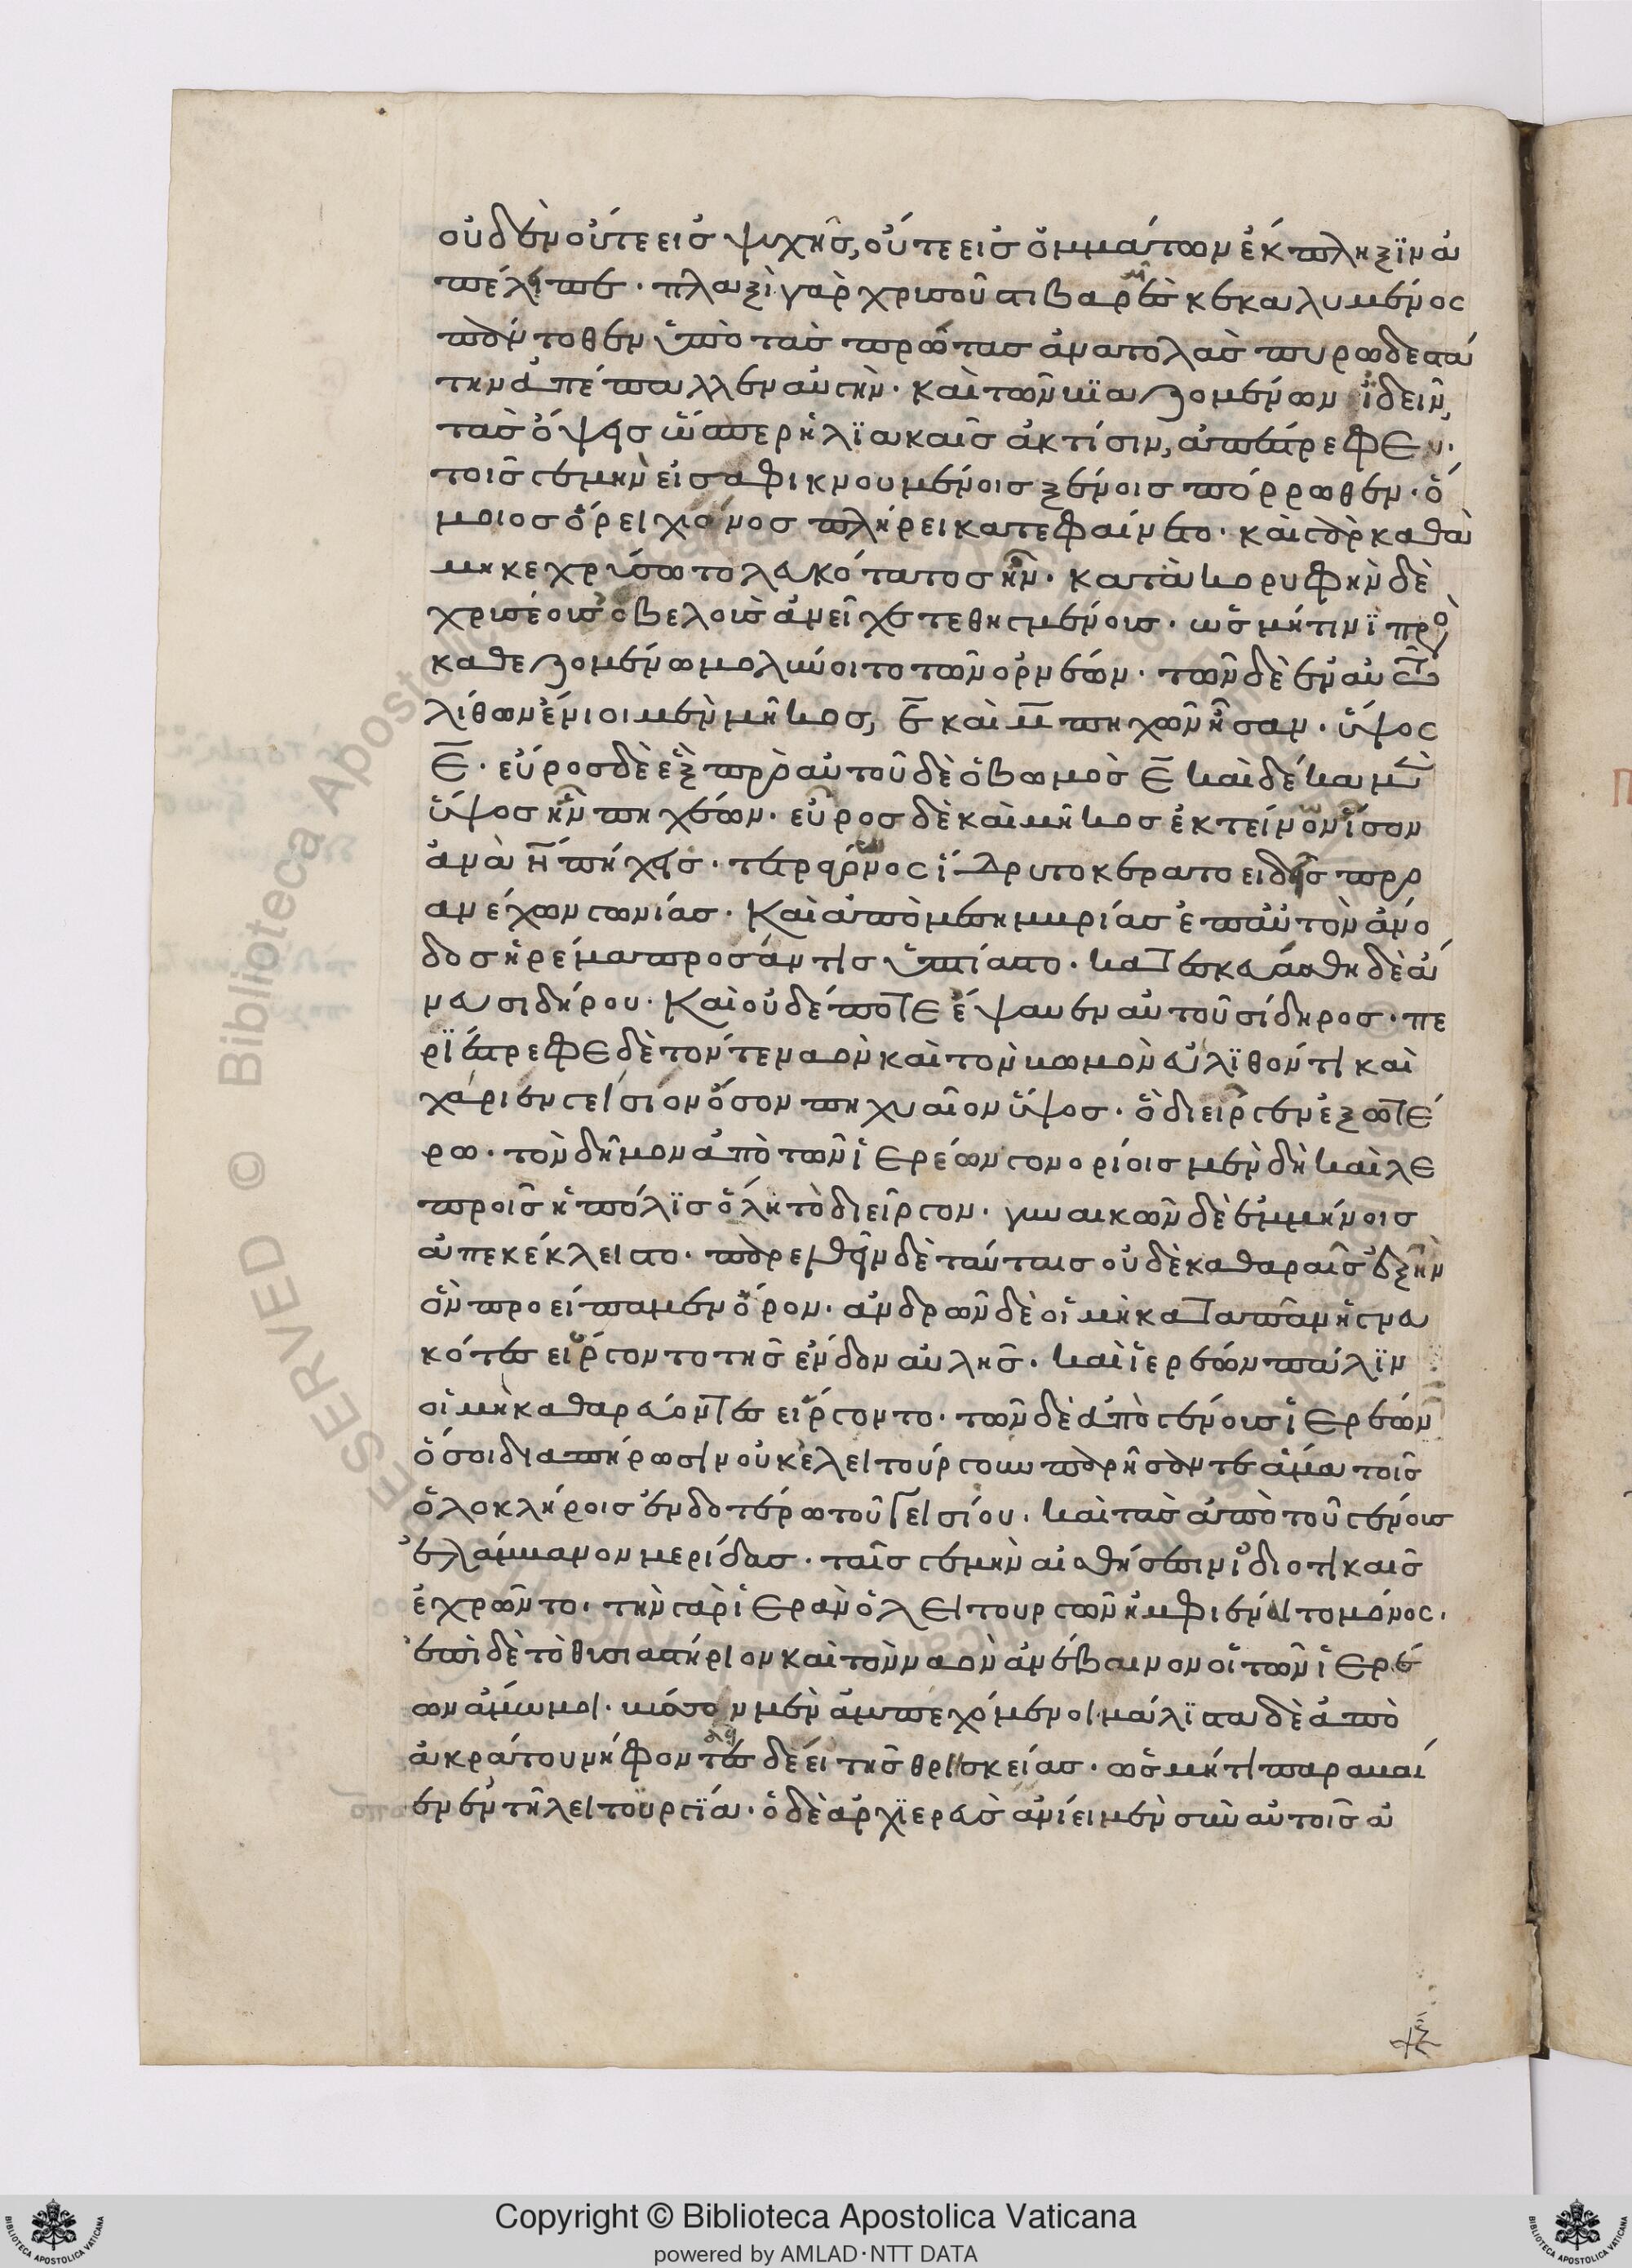 οὐδὲν οὔτε εἰς ψυχῆς, οὔτε εἰς ὀμμάτων ἔκπληξϊν ἀ
πέλειπε. πλαξὶ γὰρ χρυσοῦ στιβαραῖς κεκαλυμμένος
πάντοθεν ὑπὸ τὰς πρώτας ἀνατολὰς πυρωδεστά
την ἀπέπαλλεν αὐγὴν. καὶ τῶν βϊαζομένων ἰδεῖν,
τὰς ὄψεις ὥσπερ ἡλϊακαῖς ἀκτίσιν, ἀπέστρεφεν.
τοῖς γε μὴν εἰσαφικνουμένοις ξένοις πόρρωθεν. ὅ
μοιος ὄρει χιόνος πλήρει κατεφαίνετο. καὶ γὰρ καθὰ
μὴ κεχρύσωτο λευκότατος ἦν. κατὰ κορυφὴν δὲ
χρυσέους ὀβελοὺς ἀνεῖχε τεθηγμένους. ὡς μήτινϊ προσ
καθεζομένω μολύνοιτο τῶν ὀρνέων. τῶν δὲ ἐν αὐτῶ
λίθων ἔνιοι μὲν μῆκος, ε καὶ μ πηχῶν ἦσαν. ὕψος
ε. εὖρος δὲ ἓξ πρὸ αὐτοῦ δὲ ὁ βωμὸς ε καὶ δέκα μὲν
ὕψος ἦν πηχέων. εὖρος δὲ καὶ μῆκος ἐκτείνων ἴσον
ἀνὰ ν πήχεις. τετράγωνος ἵδρυτο κερατοειδεῖς προ
ανέχων γωνίας. καὶ ἀπὸ μεσημβρίας ἐπ αὐτὸν ἄνο
δος ἠρέμα προσάντης ὑπτίαστο. κατεσκευάσθη δὲ ἄ
νευ σιδήρου. καὶ οὐδέποτε ἔψαυεν αὐτοῦ σίδηρος. πε
ρϊέστρεφε δὲ τόν τε ναὸν καὶ τὸν βωμὸν εὔλϊθόν τι καὶ
χαρίεν γείσιον ὅσον πηχυαῖον ὕψος. ὃ διεῖργεν ἐξωτέ
ρω. τὸν δῆμον ἀπὸ τῶν ἱερέων γονορίοις μὲν δὴ καὶ λε
προῖς ἡ πόλϊς ὅλη τὸ διεῖργον. γυναικῶν δὲ ἐμμήνοις
ἀπεκέκλειστο. παρελθεῖν δὲ ταύταις οὐδὲ καθαραῖς ἐξῆν
ὃν προείπαμεν ὅρον. ἀνδρῶν δὲ οἱ μὴ καταπᾶν ἡγνευ
κότες εἴργοντο τῆς ἔνδον αὐλῆς. καὶ ἱερέων πάλϊν
οἱ μὴ καθαρεύοντες εἴργοντο. τῶν δὲ ἀπὸ γένους ἱερέων
ὅσοι διαπήρωσιν οὐκ ἐλειτούργουν παρῆσάν τε ἅμα τοῖς
ὁλοκλήροις ἐνδοτέρω τοῦ γεισίου. καὶ τὰς ἀπὸ τοῦ γένους
ἐλάμβανον μερίδας. ταῖς γε μὴν αἰσθήσεσιν ἰδιοτικαῖς
ἐχρῶντο. τὴν γὰρ ἱερὰν ὁ λειτουργῶν ἠμφιέννυτο μόνος.
ἐπὶ δὲ τὸ θυσιαστήριον καὶ τὸν ναὸν ἀνέβαινον οἱ τῶν ἱερέ
ων ἄμωμοι. βύσσον μὲν ἀμπεχόμενοι. μάλϊστα δὲ ἀπὸ
ἀκράτου νήφοντες δέει τῆς θρησκείας. ὡς μήτι παραβαῖ
εν ἐν τῆ λειτουργϊα. ὁ δὲ ἀρχϊερεὺς ἀνίει μὲν σὺν αὐτοῖς ἀ